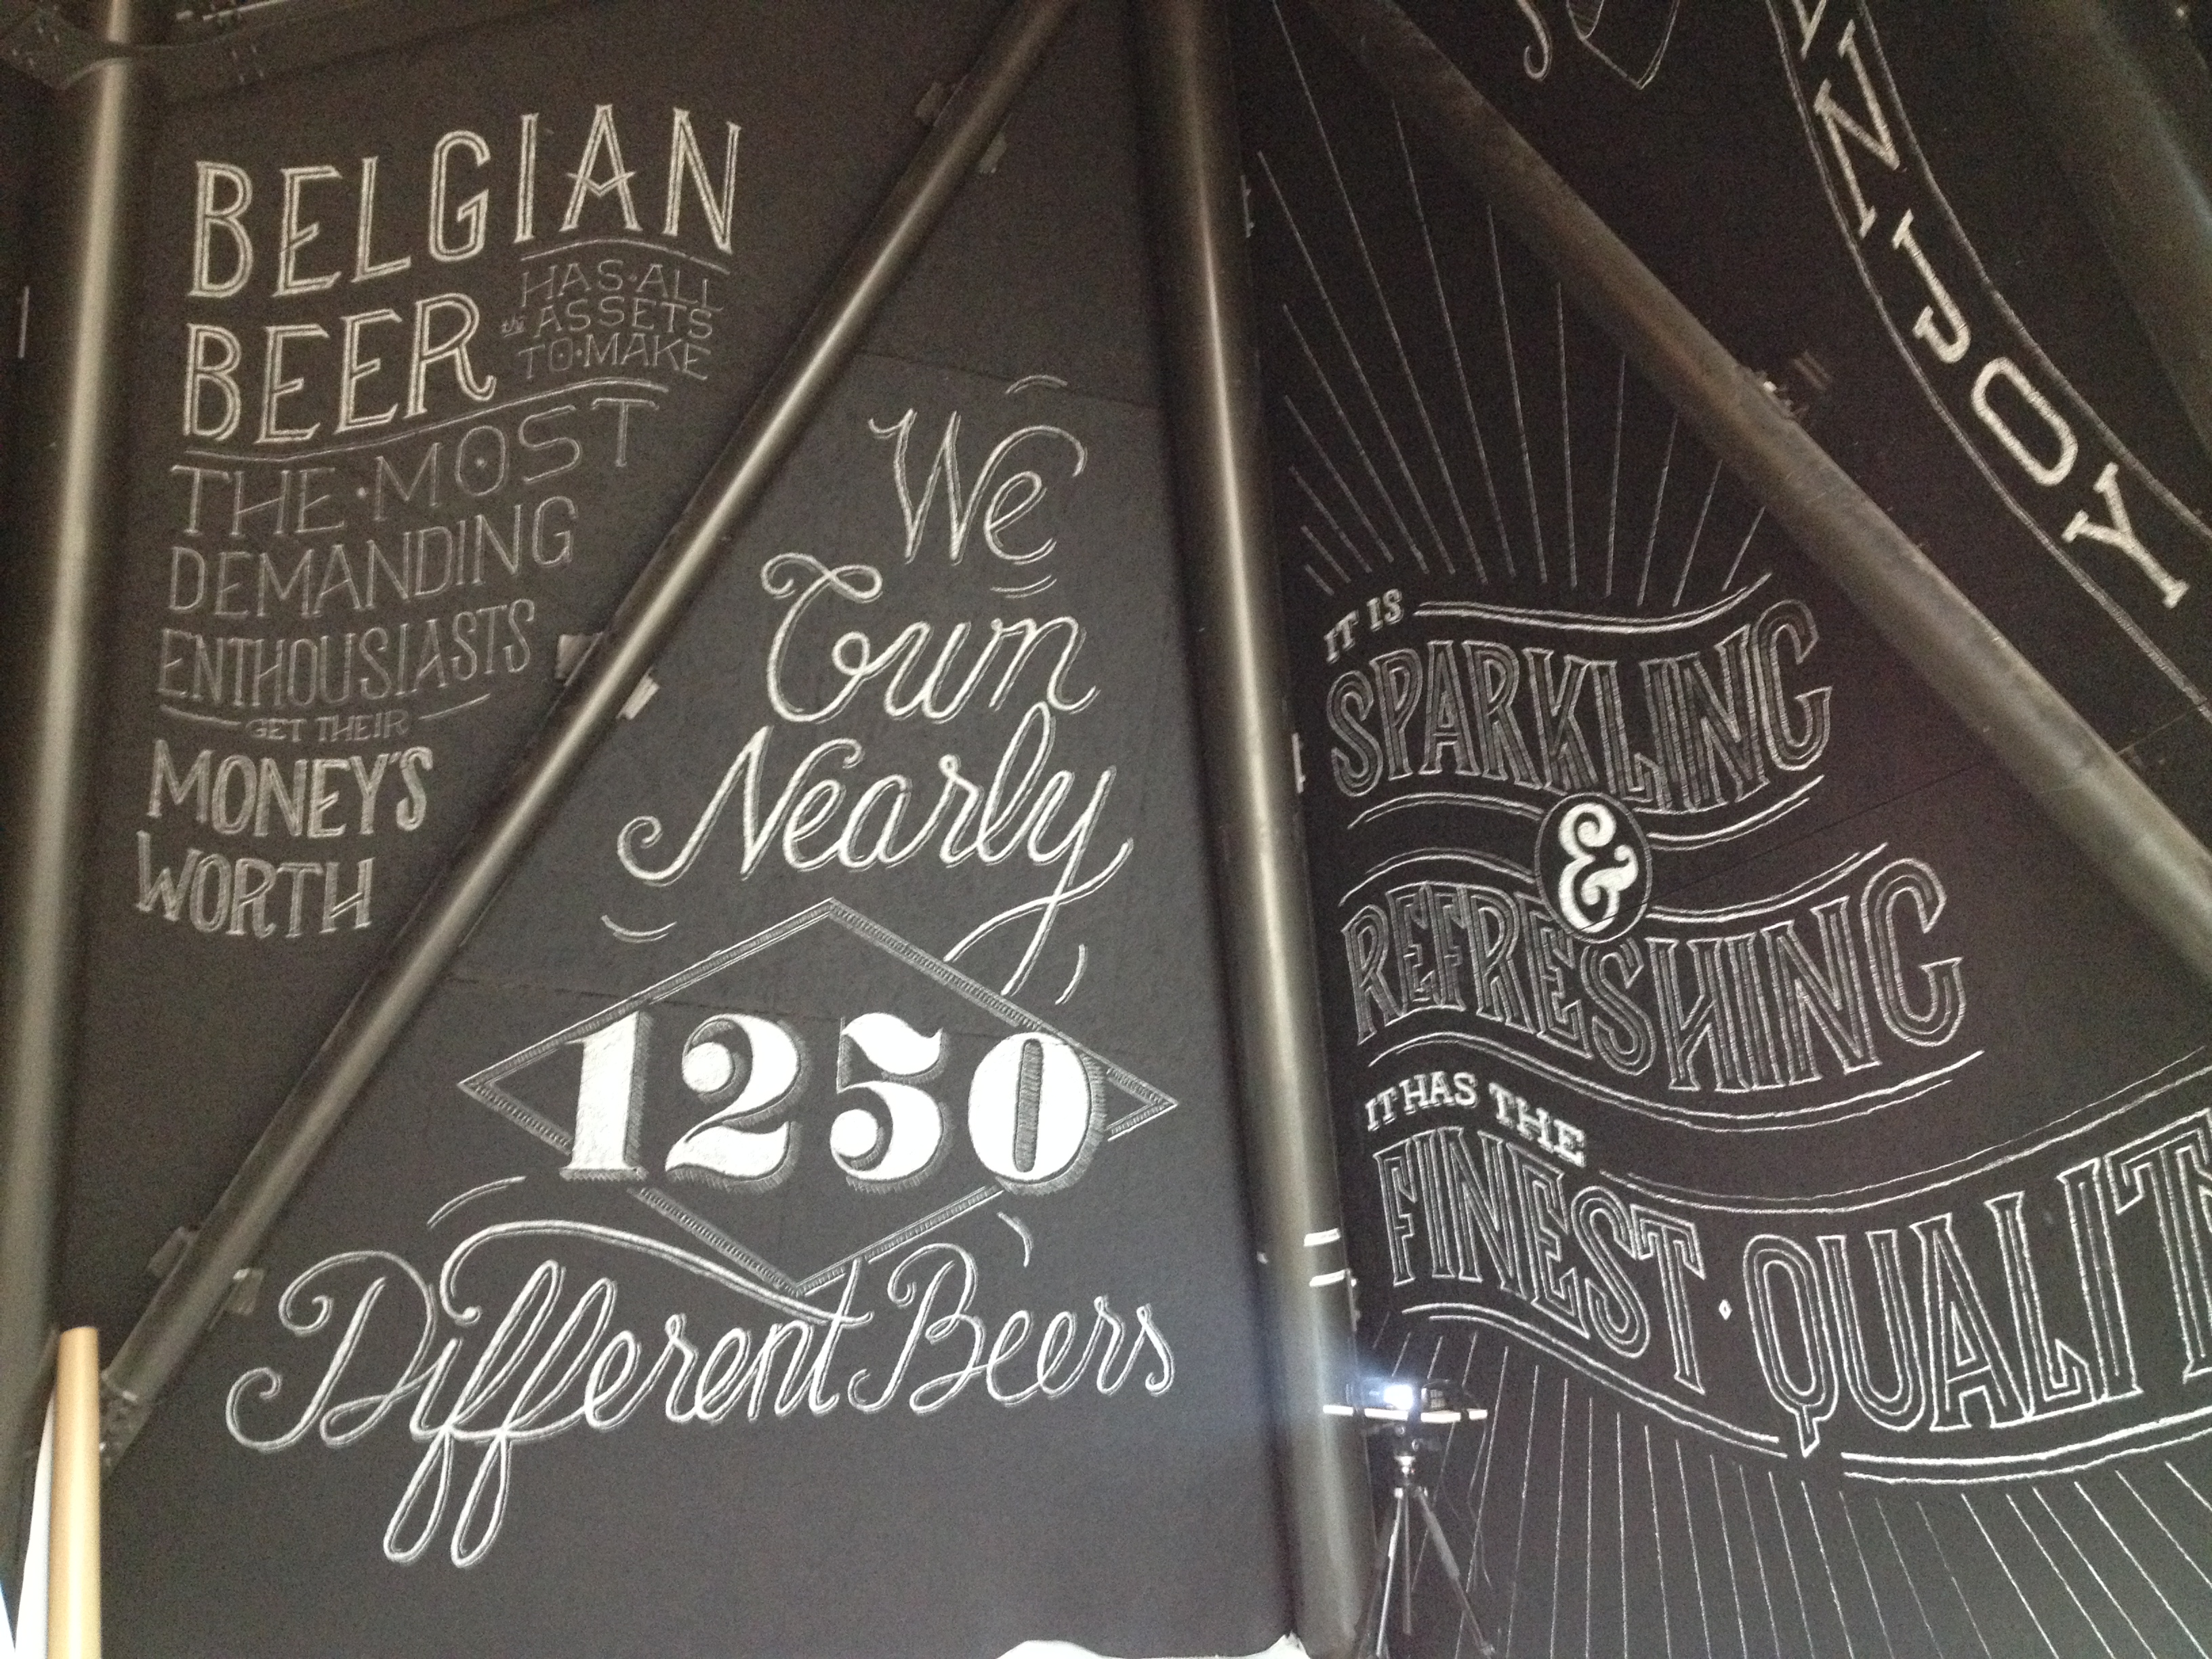 BELGIAN
BEER
HAS·ALL
the ASSETS
TO·MAKE
THE·MOST
DEMANDING
ENTHOUSIASTS
GET THEIR
MONEY'S
WORTH
We
Own
Nearly
1250
Different Beers
NJOY
IT IS
SPARKLING
&
REFRESHING
IT HAS THE
FINEST·QUALIT